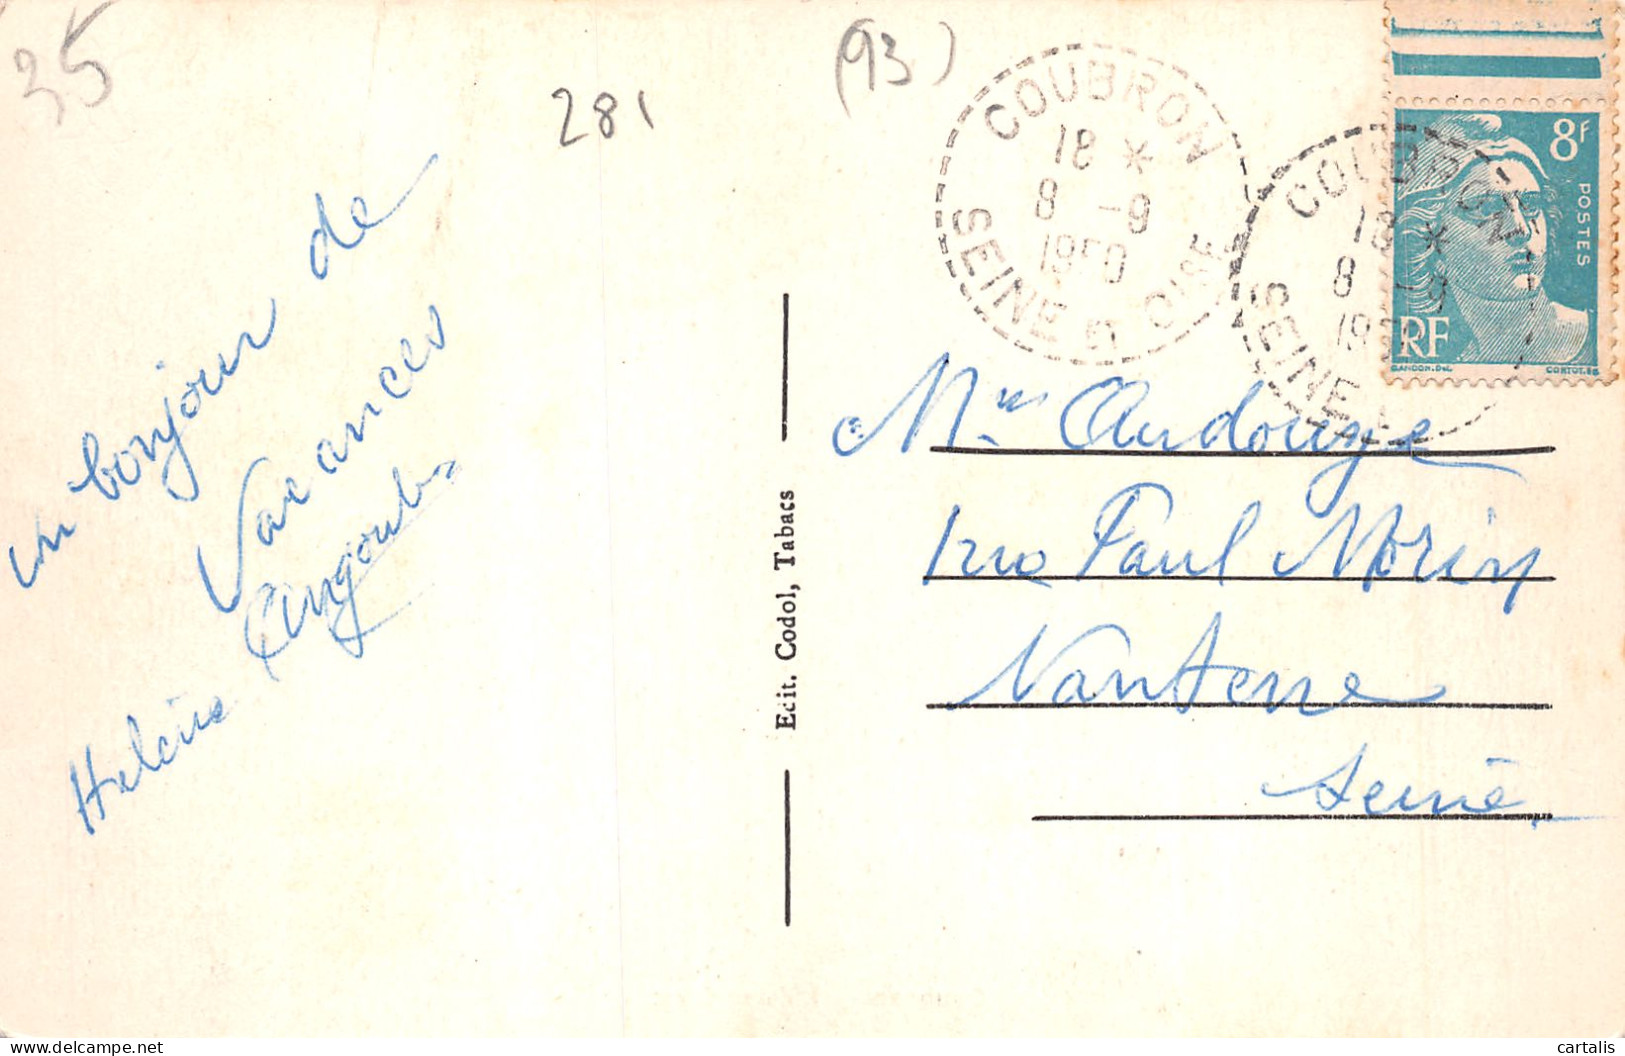 35
281
(93)
COUBRON
18 *
8 -9
1950
SEINE & OISE
COUBRON
18 *
8 -9
1950
SEINE
8F
POSTES
RF
GANDON.DEL.
CORTOT.SC
un bonjour de
Vacances
Hélène
Edit. Codol, Tabacs
Mme Andouze
1 rue Paul Morin
Nanterre
Seine
cartalis